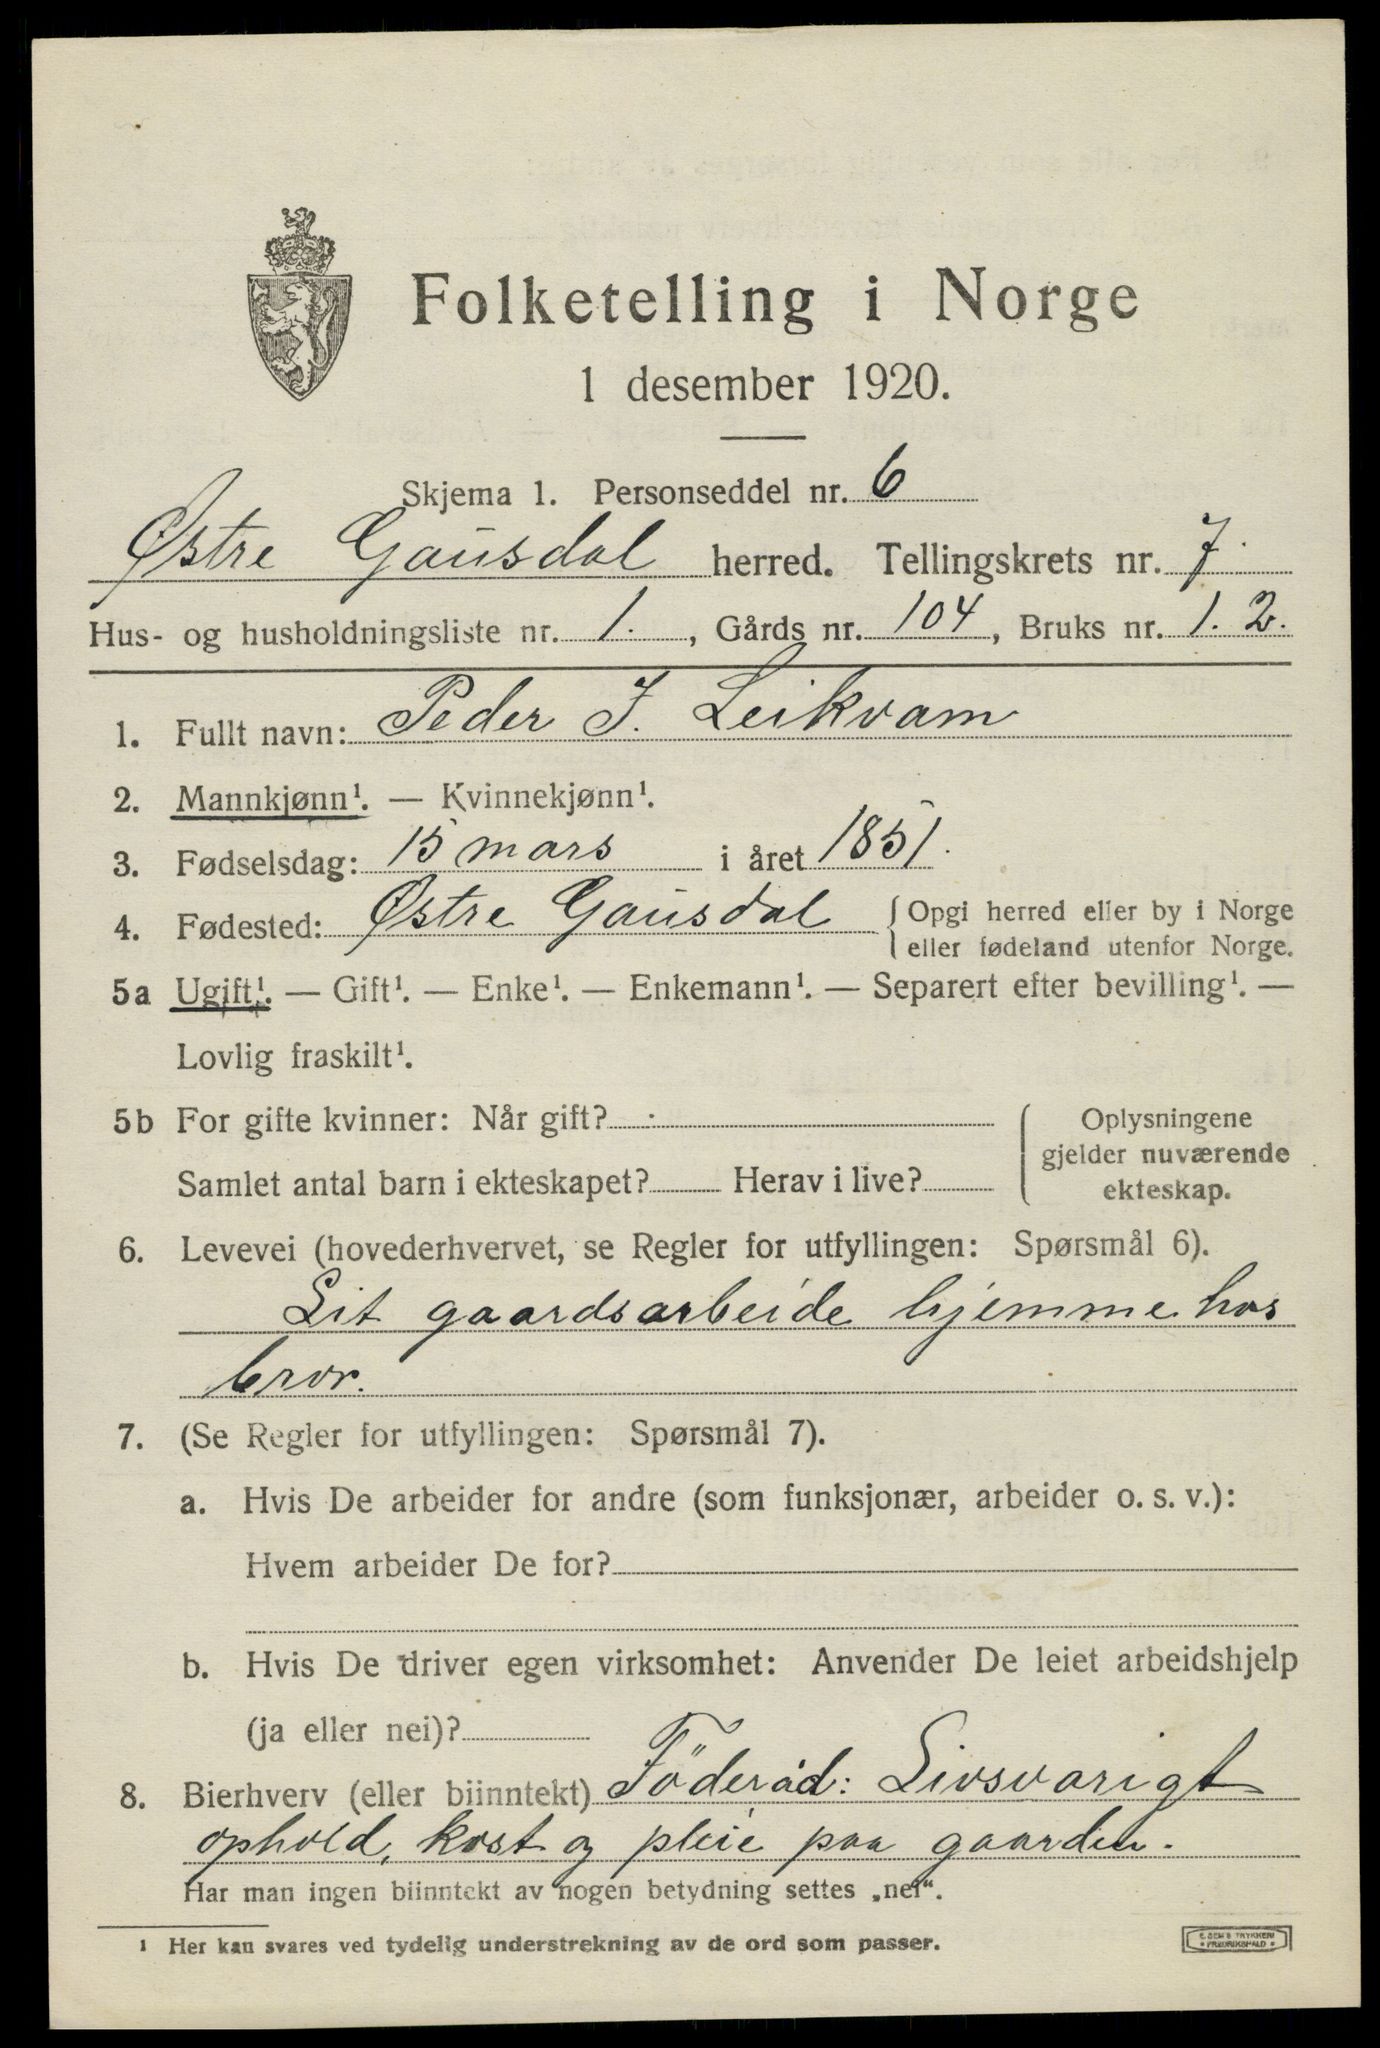 Folketelling i Norge
1 desember 1920.
Skjema 1. Personseddel nr. 6
Østre Gausdal herred. Tellingskrets nr. 7.
Hus- og husholdningsliste nr. 1., Gårds nr. 104, Bruks nr. 1. 2.
1. Fullt navn: Peder J. Leikvam
2. Mannkjønn¹. — Kvinnekjønn¹.
3. Fødselsdag: 15 mars i året 1851.
4. Fødested: Østre Gausdal { Opgi herred eller by i Norge
eller fødeland utenfor Norge.
5a Ugift¹. — Gift¹. — Enke¹. — Enkemann¹. — Separert efter bevilling¹. —
Lovlig fraskilt¹.
5b For gifte kvinner: Når gift?
Samlet antal barn i ekteskapet? Herav i live?
Oplysningene
gjelder nuværende
ekteskap.
6. Levevei (hovederhvervet, se Regler for utfyllingen: Spørsmål 6).
Lit gaardsarbeide hjemme hos
bror.
7. (Se Regler for utfyllingen: Spørsmål 7).
a. Hvis De arbeider for andre (som funksjonær, arbeider o. s. v.):
Hvem arbeider De for?
b. Hvis De driver egen virksomhet: Anvender De leiet arbeidshjelp
(ja eller nei)?
8. Bierhverv (eller biinntekt) Föderåd: Livsvarigt
ophold, kost og pleie paa gaarden.
Har man ingen biinntekt av nogen betydning settes „nei“.
¹ Her kan svares ved tydelig understrekning av de ord som passer.
E. SEM'S TRYKKERI
* FREDRIKSHALD *